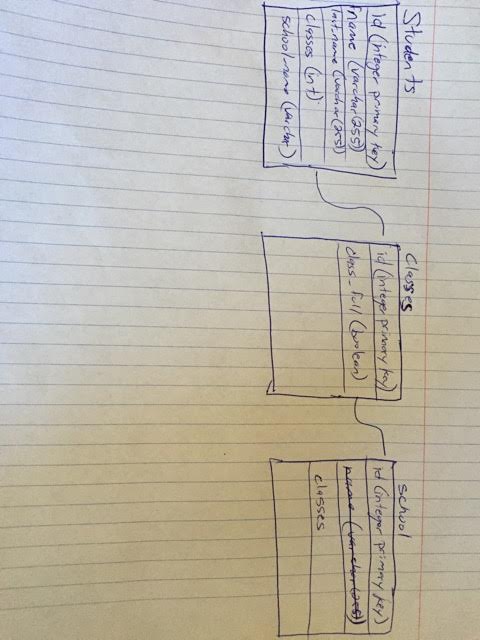 Students
id (integer primary key)
fname (varchar(255))
lastname (varchar(255))
classes (int)
school-name (varchar)
Classes
id (integer primary key)
class_full (boolean)
school
id (integer primary key)
name (varchar(255))
classes